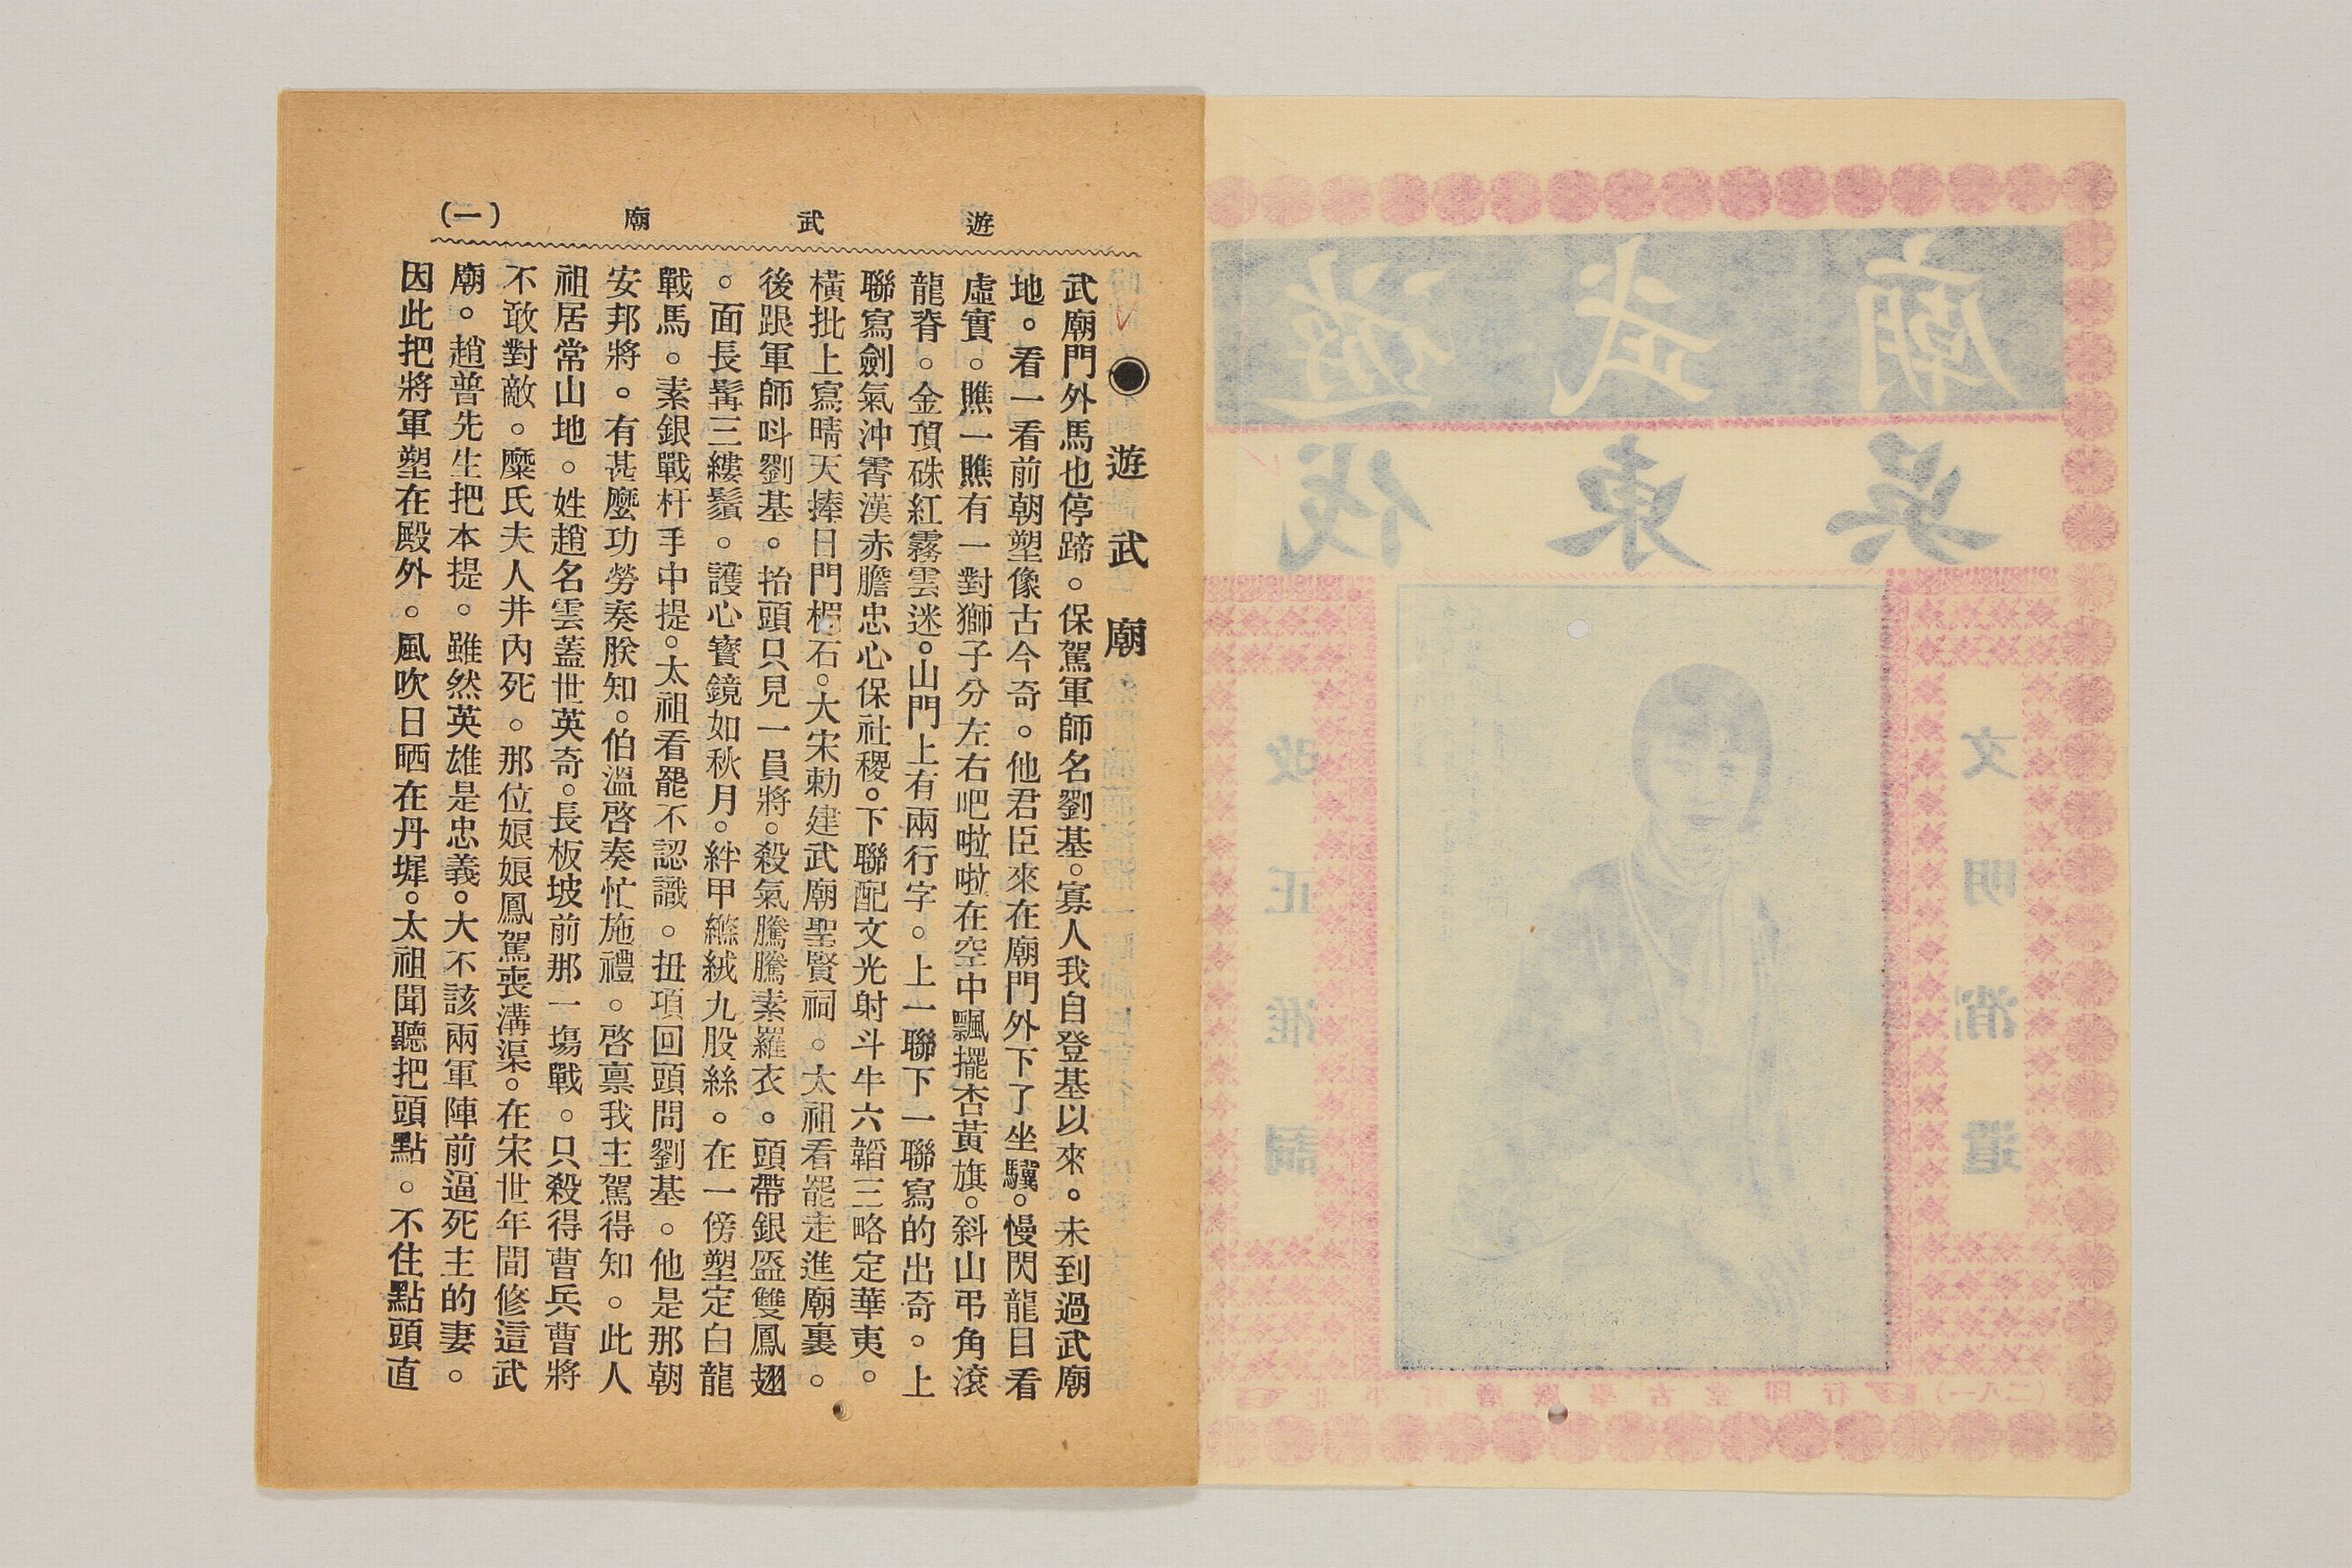 遊武廟
伐東吳
文明消遣
改正准詞
北平打磨廠學古堂印行（一八二）
遊武廟（一）
●遊武廟
武廟門外馬也停蹄。保駕軍師名劉基。寡人我自登基以來。未到過武廟
地。看一看前朝塑像古今奇。他君臣來在廟門外下了坐驥。慢閃龍目看
虛實。瞧一瞧有一對獅子分左右吧啦啦在空中飄擺杏黃旗。斜山弔角滾
龍脊。金頂硃紅霧雲迷。山門上有兩行字。上一聯下一聯寫的出奇。上
聯寫劍氣沖霄漢赤膽忠心保社稷。下聯配文光射斗牛六韜三略定華夷。
橫批上寫晴天捧日門楣石。大宋勅建武廟聖賢祠。太祖看罷走進廟裏。
後跟軍師呌劉基。抬頭只見一員將。殺氣騰騰素羅衣。頭帶銀盔雙鳳翅
。面長髯三縷鬚。護心寶鏡如秋月。絆甲縧絨九股絲。在一傍塑定白龍
戰馬。素銀戰杆手中提。太祖看罷不認識。扭項回頭問劉基。他是那朝
安邦將。有甚麼功勞奏朕知。伯溫啓奏忙施禮。啓禀我主駕得知。此人
祖居常山地。姓趙名雲蓋世英奇。長板坡前那一塲戰。只殺得曹兵曹將
不敢對敵。糜氏夫人井內死。那位娘娘鳳駕喪溝渠。在宋世年間修這武
廟。趙普先生把本提。雖然英雄是忠義。大不該兩軍陣前逼死主的妻。
因此把將軍塑在殿外。風吹日晒在丹墀。太祖聞聽把頭點。不住點頭直